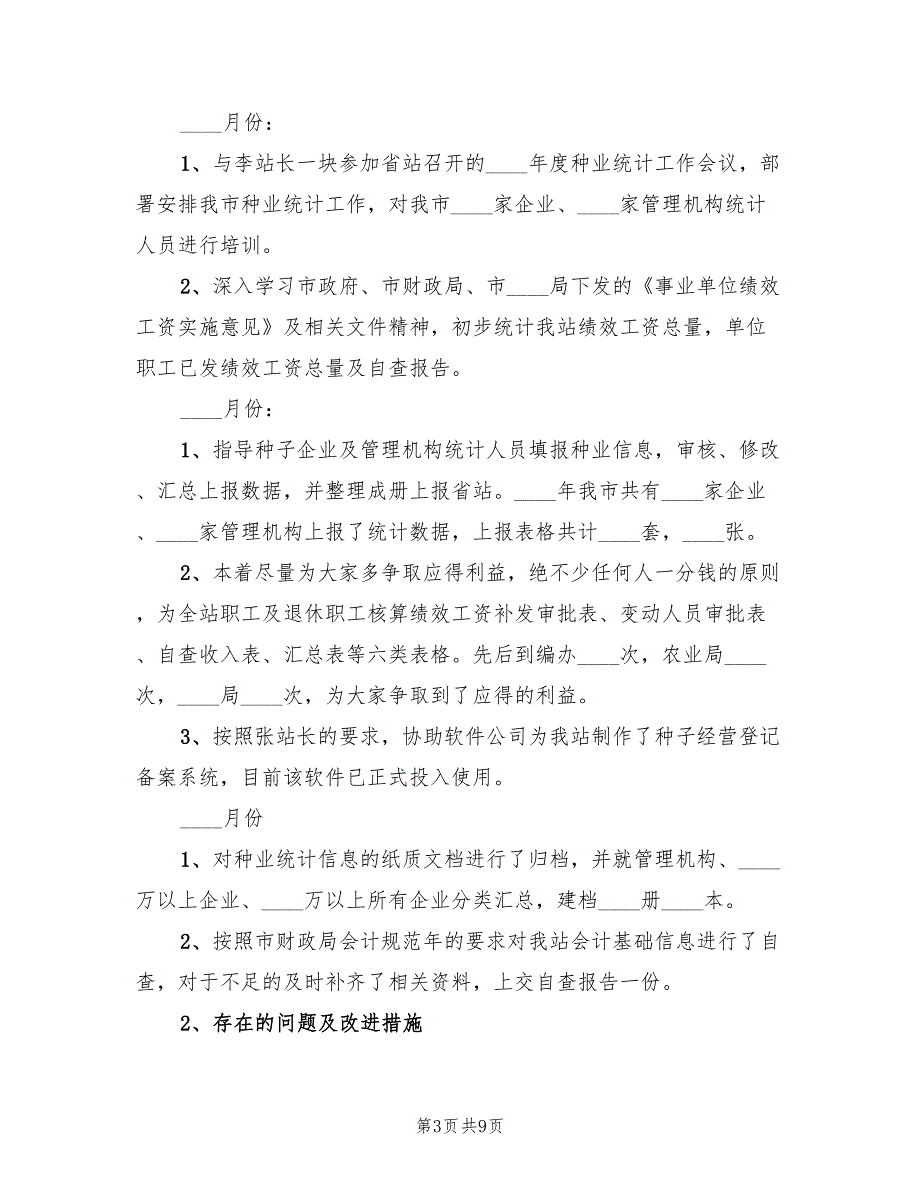 ____月份：
1、与李站长一块参加省站召开的____年度种业统计工作会议，部
署安排我市种业统计工作，对我市____家企业、____家管理机构统计
人员进行培训。
2、深入学习市政府、市财政局、市____局下发的《事业单位绩效
工资实施意见》及相关文件精神，初步统计我站绩效工资总量，单位
职工已发绩效工资总量及自查报告。
____月份：
1、指导种子企业及管理机构统计人员填报种业信息，审核、修改
、汇总上报数据，并整理成册上报省站。____年我市共有____家企业
、____家管理机构上报了统计数据，上报表格共计____套，____张。
2、本着尽量为大家多争取应得利益，绝不少任何人一分钱的原则
，为全站职工及退休职工核算绩效工资补发审批表、变动人员审批表
、自查收入表、汇总表等六类表格。先后到编办____次，农业局____
次，____局____次，为大家争取到了应得的利益。
3、按照张站长的要求，协助软件公司为我站制作了种子经营登记
备案系统，目前该软件已正式投入使用。
____月份
1、对种业统计信息的纸质文档进行了归档，并就管理机构、____
万以上企业、____万以上所有企业分类汇总，建档____册____本。
2、按照市财政局会计规范年的要求对我站会计基础信息进行了自
查，对于不足的及时补齐了相关资料，上交自查报告一份。
2、存在的问题及改进措施
第3页 共9页